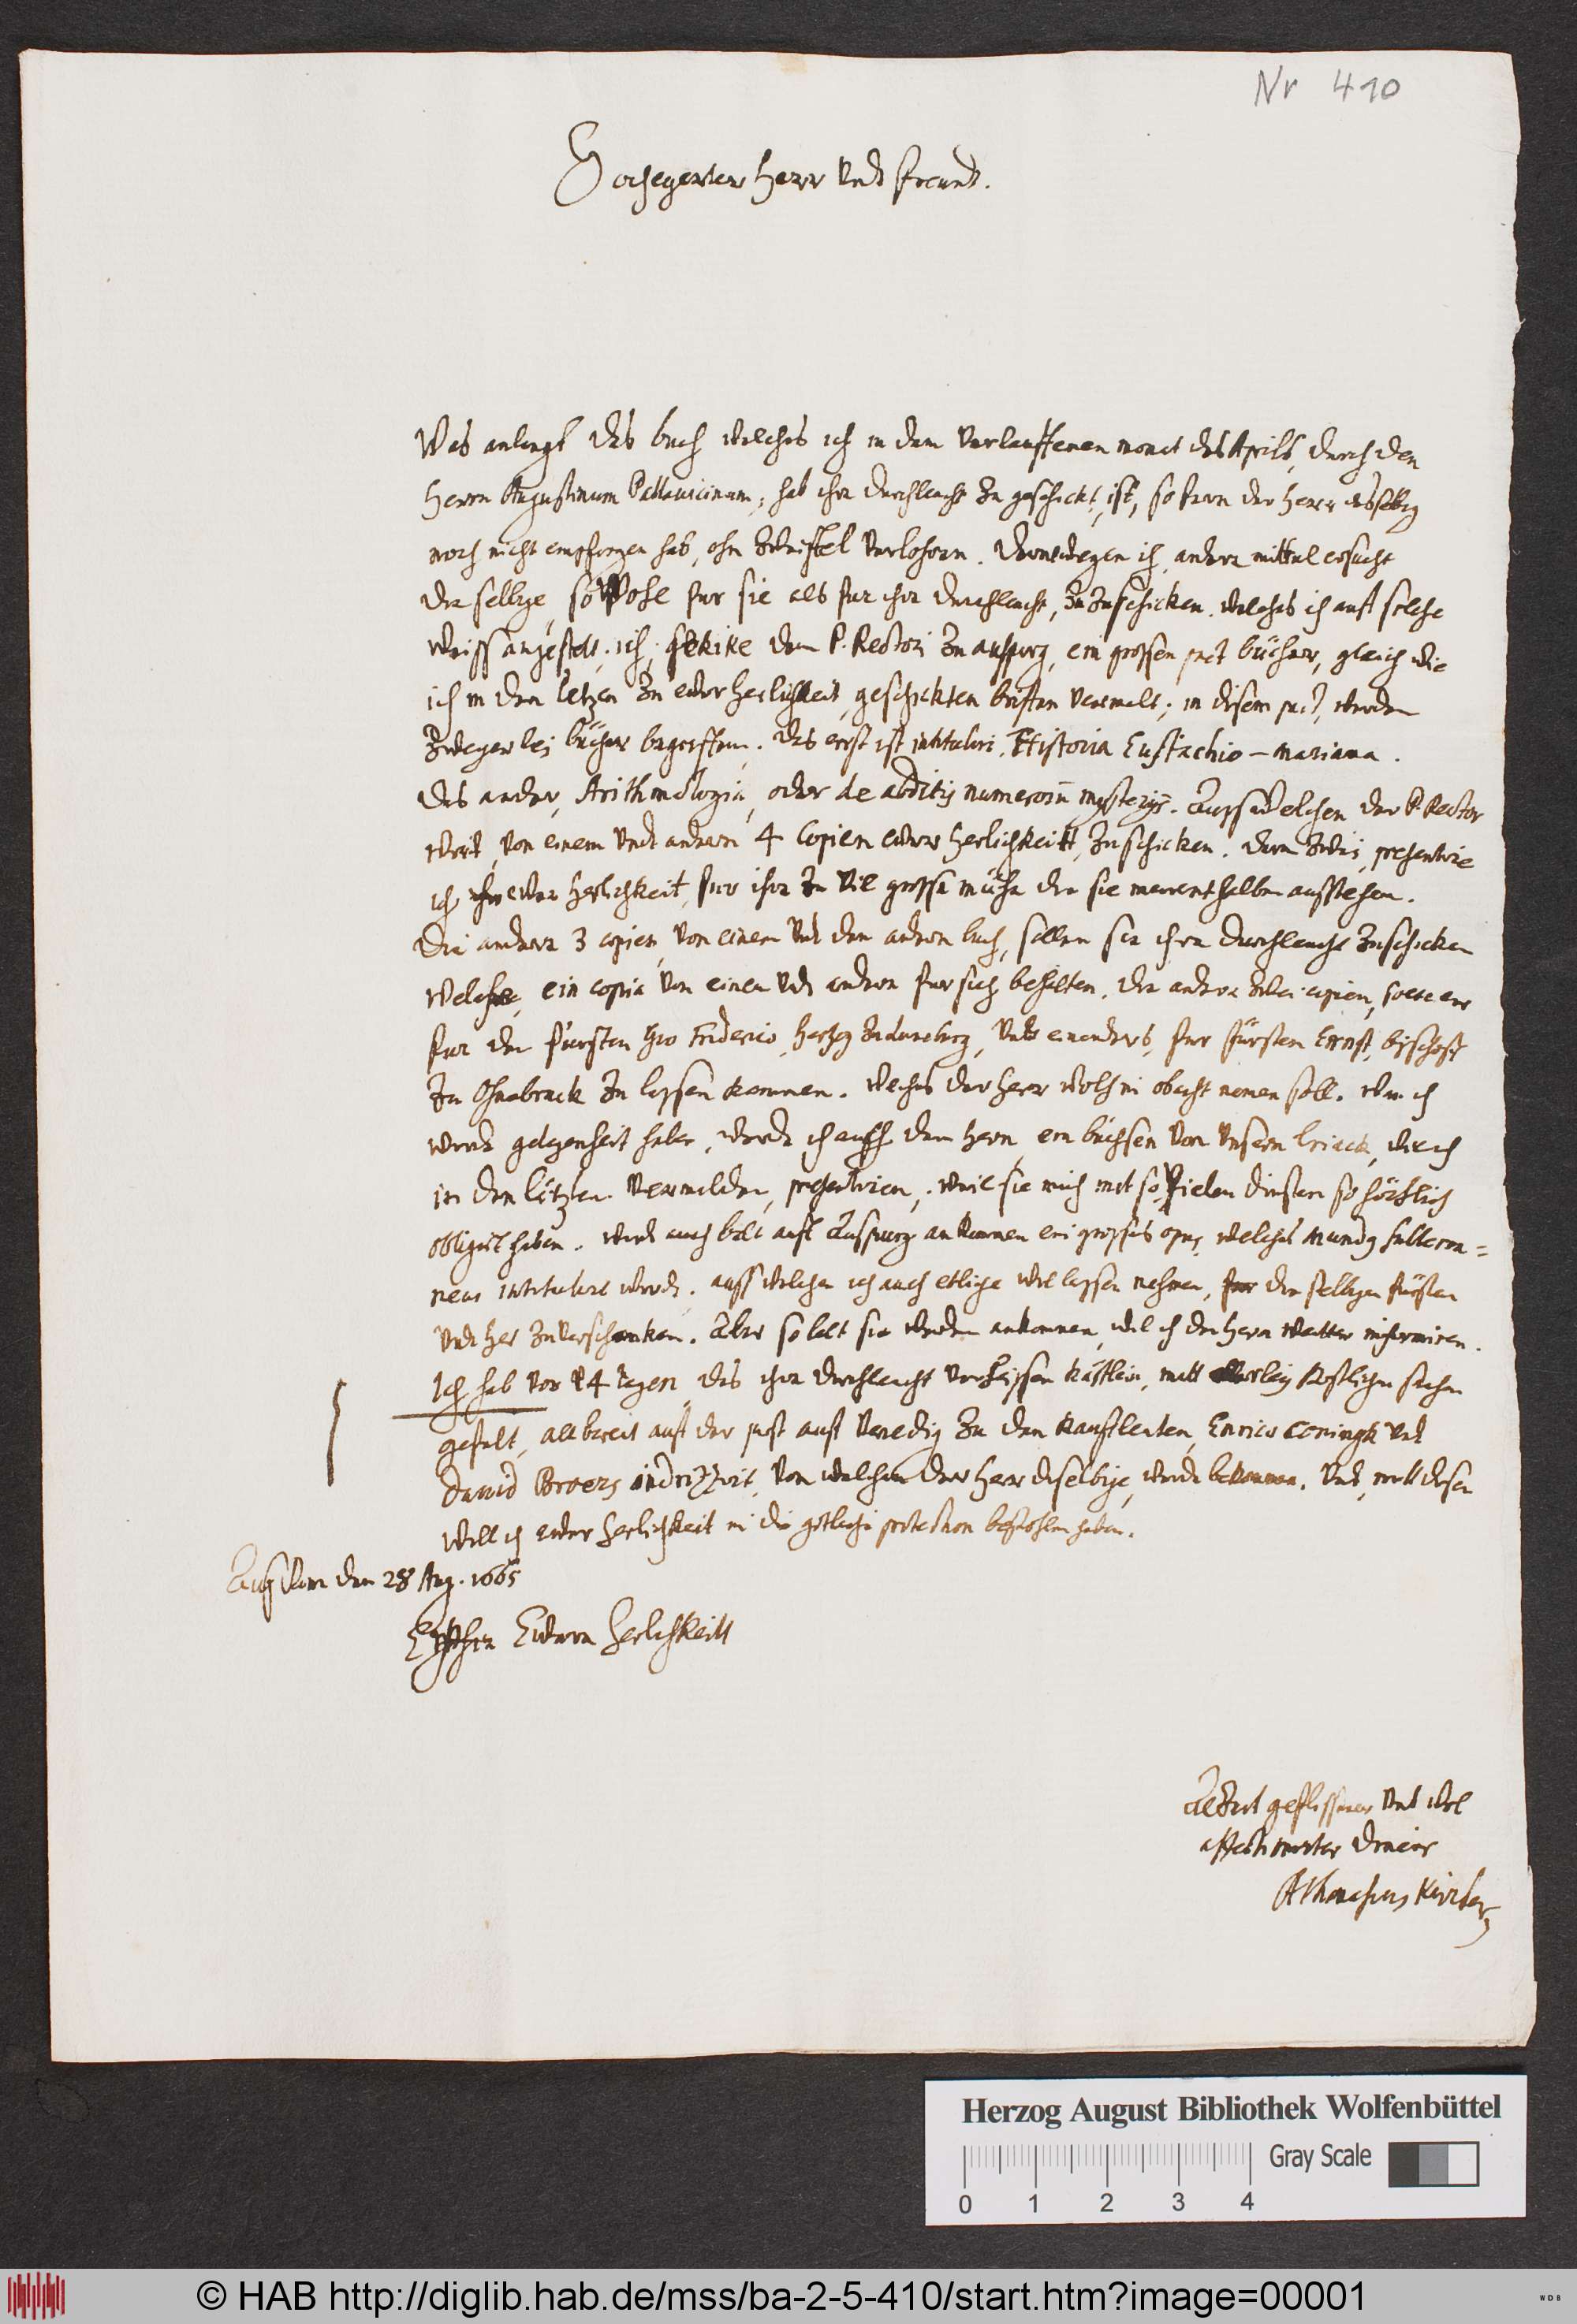 Nr 410
Hochgeerter Herr Undt freundt.
Was anlangt das buch welches ich in dem Verlauffenen monat des Aprils, durch den
Herrn Augustinum Pallavicinum, hab ihre durchleucht zu geschickt, ist, so fern der Herr dasselbig
noch nicht empfangen hab, ohn zweiffel verlohren. derentwegen ich andere mittel ersucht
die sellige, so Wohl fur sie als fur ihre durchleucht, zu zuschicken. welches ich auf solche
weiss angestelt. ich schikke dem P. Rectori zu auspurg, ein grossen pact bücher, gleich wie
ich in den letzen zu ewer herlichkeit geschickten briffen vermelt; in disem pact, werden
zweyerlei bücher begriffen. das erst ist intitulirt. Historia Eustachio-Mariana.
das ander, Arithmologia, oder de abditis numerorum mysterijs. Auss welchen der P. Rector
wird, von einem Undt andern 4 Copien ewer herlichkeitt, zu schicken. deren zwei, presentire
ich ewer herlichkeit, fur ihre zu vil grosse mühe die sie meinenthalben ausstehen.
Die andere 3 copien von einem Undt dem andern buch, sollen sie ihre durchleucht zuschicken
welche, ein copia von einem Undt andern fur sich behalten. die andere zwei copien, solle er
fur den fürsten Gio Friderico, hertzog zu Luneburg, Undt ein anders, fur fürsten Ernst, bischoff
zu Osnabruck zu lassen kommen. welches der herr wohl in obacht nemen soll. wan ich
werde gelegenheit haben, werde ich auch dem hern, ein büchsen von Unsern triack, wie ich
in den letzten Vermelden, presentiren, weil sie mich mit so Vielen dinsten so höchlich
obligirt haben. wird auch bald auff Auspurg ankommen ein grosses opus, welches Mundus subterra=
neus intitulirt wird. auss welchen ich auch etliche wil lassen nehmen, die selligen fürsten
Undt her zu verschenken. Aber so balt sie werden ankommen, wil ich den hern weitter informiren.
Ich hab vor 14 tagen, das ihre durchleucht verheissen kästlein, mitt allerley kostlichen sachen
gefült, allbereit auff der post auff Venedig zu den kauffleuten, Enrico Coningk Undt
David Broers indrizzirt, von welchen der herr deselbige, werde bekommen. Undt mitt disen
will ich ewer herlichkeit in die götliche protection befohlen haben.
Aus Rom den 28 Aug. 1665
Ewer Herlichkeitt
Alzeit geflissener Undt wol
affectionirter diener
Athanasius Kircher
Herzog August Bibliothek Wolfenbüttel
Gray Scale
0 1 2 3 4
© HAB http://diglib.hab.de/mss/ba-2-5-410/start.htm?image=00001
WDB